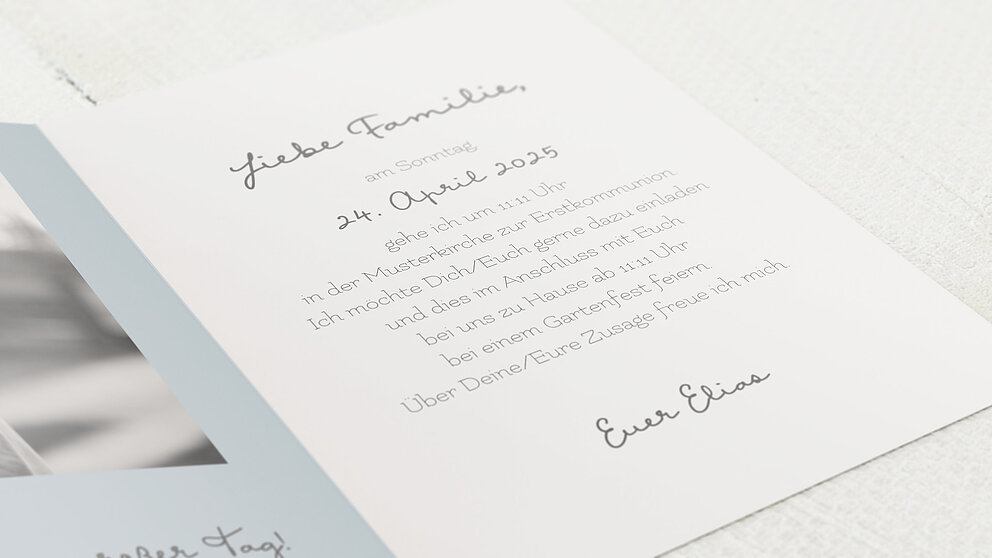 Liebe Familie,
am Sonntag
24. April 2025
gehe ich um 11:11 Uhr
in der Musterkirche zur Erstkommunion.
Ich möchte Dich/Euch gerne dazu einladen
und dies im Anschluss mit Euch
bei uns zu Hause ab 11:11 Uhr
bei einem Gartenfest feiern.
Über Deine/Eure Zusage freue ich mich.
Euer Elias
Tag!